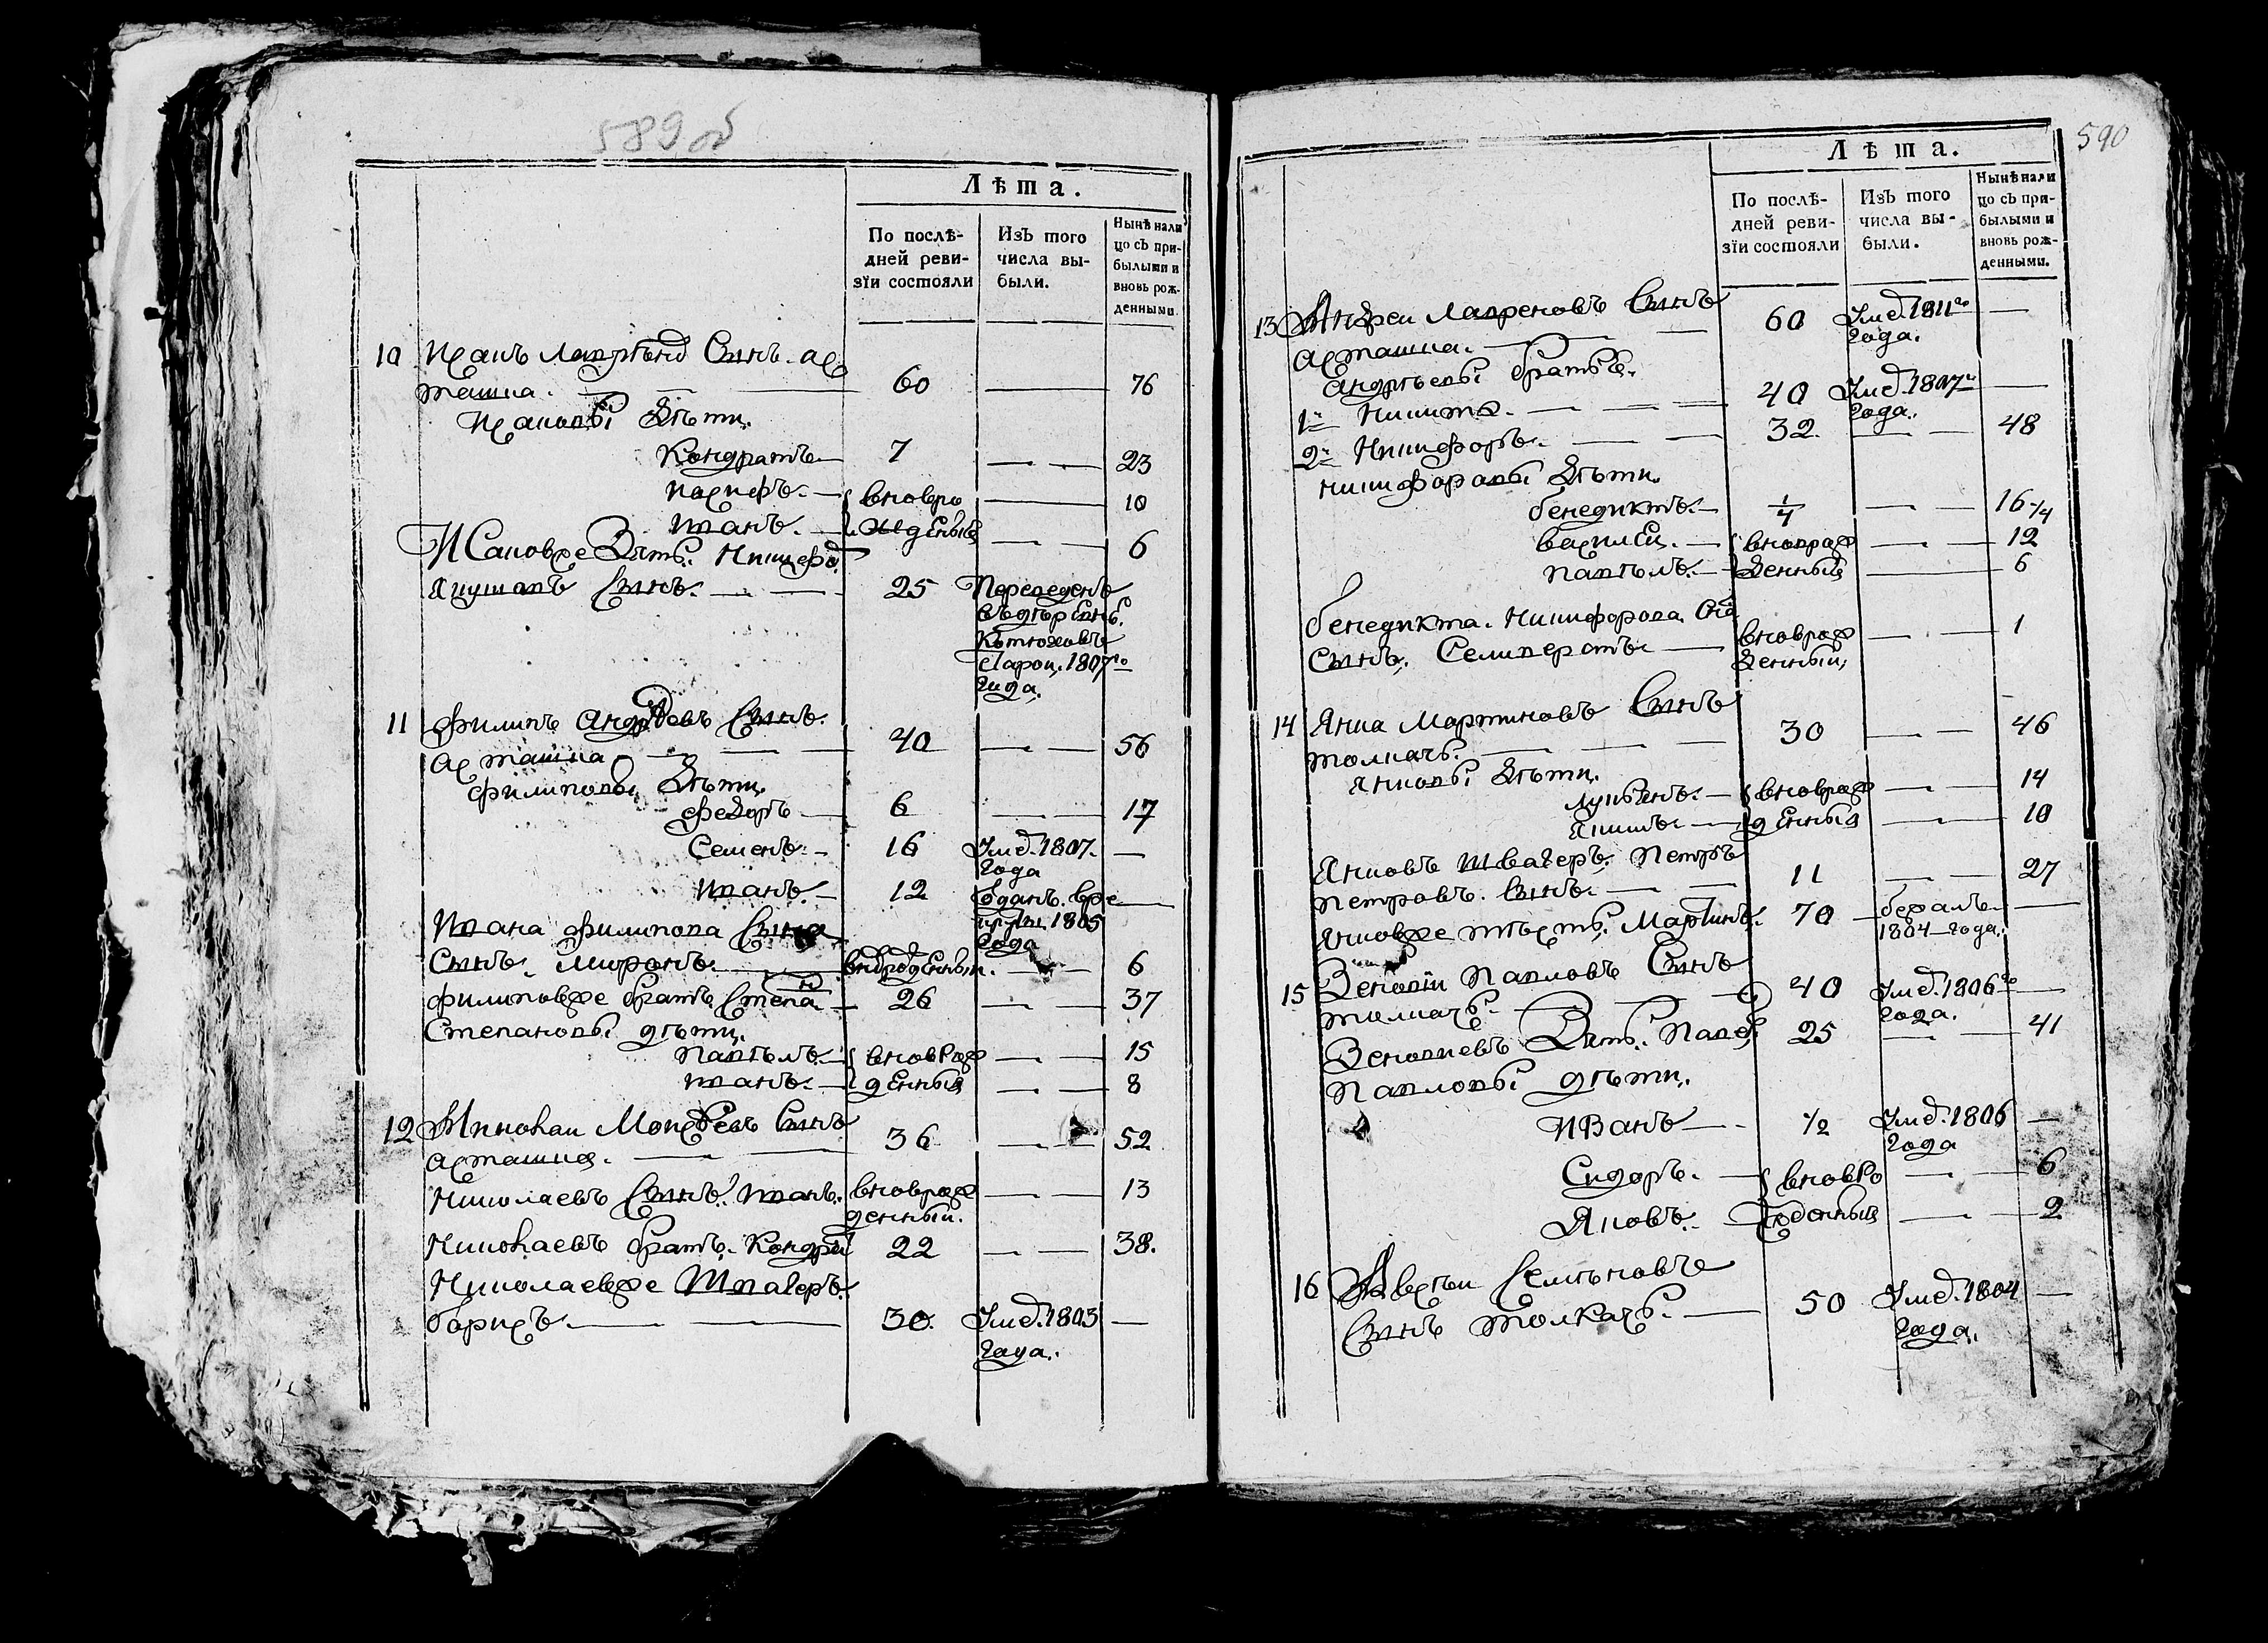 589 об
Лѣта.
По послѣ-
дней реви-
зїи состояли
Изъ того
числа вы-
были.
Нынѣ нали
цо съ при-
былыми и
вновь рож-
денными.
10 Исакъ Сынъ. ас
ташка. — 60 — 76
Исаковы Дѣти.
Кондратъ — 7 — 23
Иосифъ. — вновро — 10
Иванъ. — жденныя — 6
Исаковже Зять. Никифо
Сынъ. — 25 Переведенъ
1807го
года.
11 Филипъ Андрѣевъ Сынъ.
асташка — 40 — 56
Филиповы Дѣти.
Федоръ — 6 — 17
Семенъ. — 16 Умѣ. 1807. —
года
Иванъ. — 12 Отданъ. вре —
круты 1805
года
Ивана Филипова Сына
Сынъ. Миронъ. вновроденный. — 6
Филиповже братъ Степа — 26 — 37
Степановы дѣти.
Павѣлъ. — вноврож — 15
Иванъ. — денныя — 8
12 Николаи Сынъ
асташка. — 36 — 52
Николаевъ Сынъ. Иванъ. вноврож — 13
денныи.
Николаевъ братъ. Кондра 22 — 38.
Николаевже Швагеръ.
борисъ. — 30. Умѣ. 1803 —
года.
590
Лѣта.
По послѣ-
дней реви-
зїи состояли
Изъ того
числа вы-
были.
Нынѣ нали
цо съ при-
былыми и
вновь рож-
денными.
13 Андреи Лавреновъ Сынъ 60 Умѣ. 1811го —
асташка. — года.
Андрѣевы братья.
1й Никита. — 40 Умѣ. 1807го —
года.
2й Никифоръ. — 32. — 48
Никифоровы Дѣти.
бенедиктъ. — 1/4 — 16 1/4
Василеи. — вноврож — 12
Павѣлъ. — денныя — 6
бенедикта. Никифорова Сна
Сынъ. Селивератъ — вноврож — 1
денный.
14 Янка Мартиновъ Сынъ
толкачъ. — 30 — 46
Янковы Дѣти.
Лукьянъ. — вноврож — 14
Якимъ. — денныя — 10
Янковъ швагеръ. Петръ
Петровъ. Сынъ. — 11 — 27
Янковже тѣсть. Мартинъ. 70 — бежалъ. —
1804 года.
15 Зеновїи Павловъ Сынъ
толкачъ. — 40 Умѣ. 1806го —
года.
Зеновиевъ Зять. Павел 25 — 41
Павловы дѣти.
Иванъ — 1/2 Умѣ. 1806 —
года
Сидоръ. — вновро — 6
Яковъ. — жденныя — 2
16 Авсѣи Семѣновъ
Сынъ толкачъ. — 50 Умѣ. 1804 —
года.